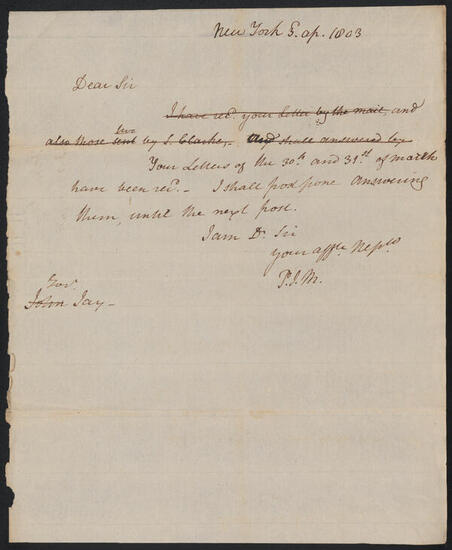 New York 5. ap. 1803
Dear Sir
I have recd. your Letter by the mail, and
two
also those sent by S. Clarke,- and shall answered by
Your Letters of the 30th. and 31st. of march
have been recd.- I shall postpone answering
them, until the next post.
I am Dr. Sir
your affte. Neph.
P. J. M.
Govr.
John Jay-